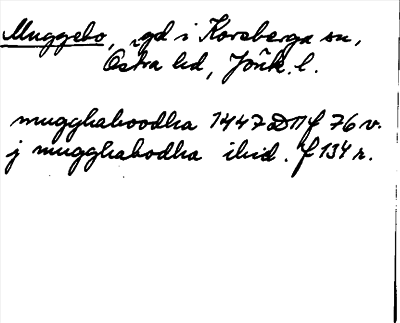 Muggebo, gd i Korsberga sn,
Östra hd, Jönk. l.
mugghaboodha 1447 DII f 76 v.
j mugghabodha ibid. f 134 r.